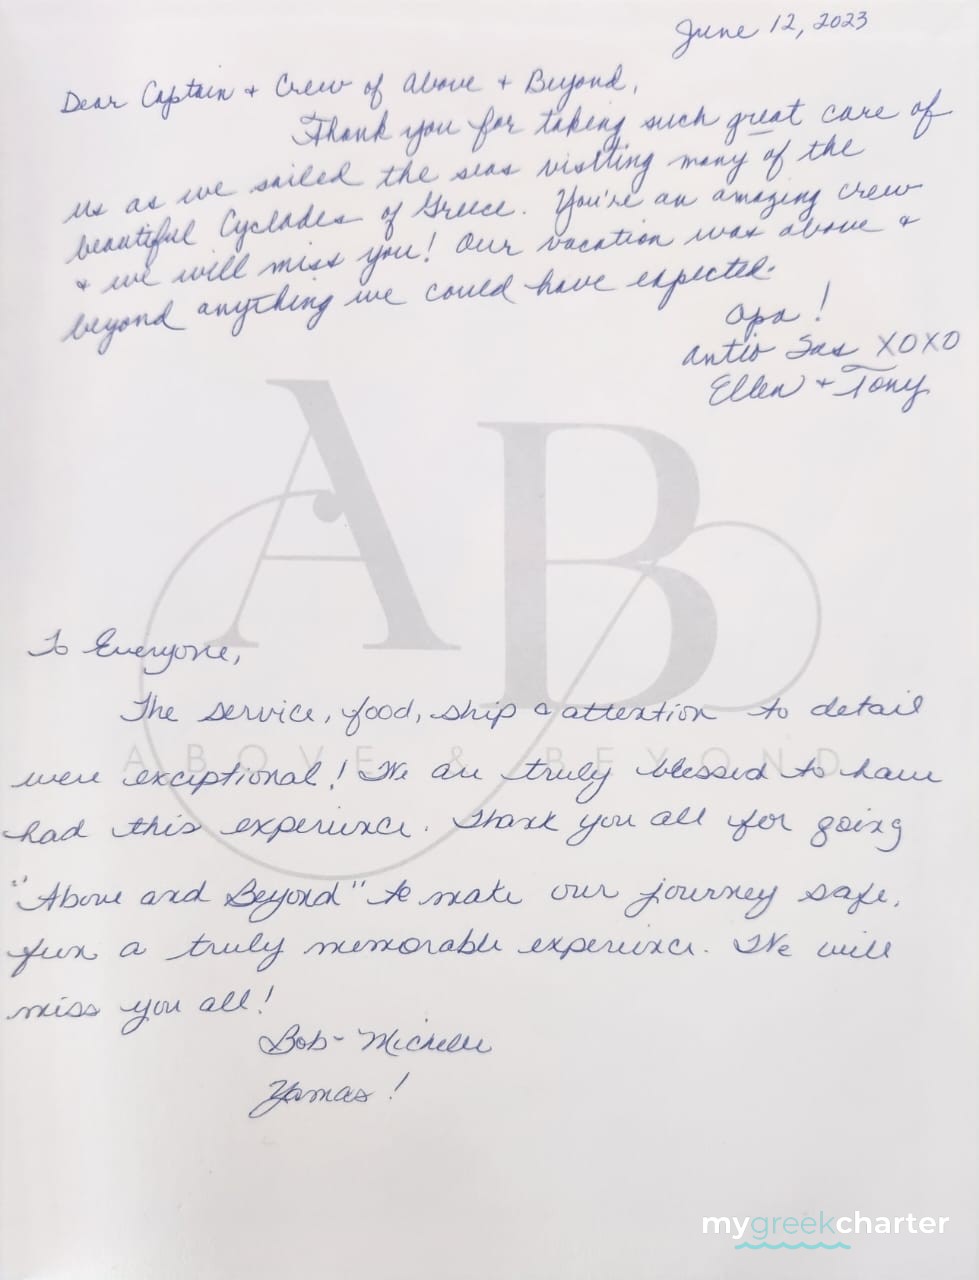 June 12, 2023
Dear Captain + Crew of Above + Beyond,
Thank you for taking such great care of
us as we sailed the seas visiting many of the
beautiful Cyclades of Greece. You're an amazing crew
+ we will miss you! Our vacation was above +
beyond anything we could have expected.
Opa!
Antio Sas XOXO
Ellen + Tony
AB
To Everyone,
The service, food, ship & attention to detail
ABOVE & BEYOND
were exceptional! We are truly blessed to have
had this experience. Thank you all for going
"Above and Beyond" to make our journey safe,
fun & truly memorable experience. We will
miss you all!
Bob - Michelle
Yamas!
mygreekcharter